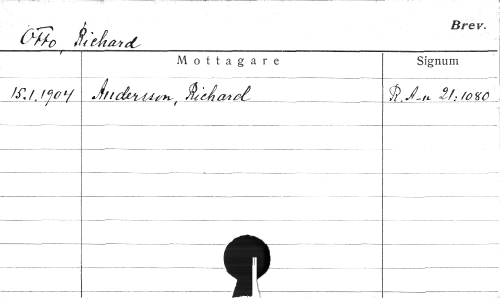 Brev.
Otto, Richard
Mottagare Signum
15.1.1904 Andersson, Richard R.A-n 21:1080